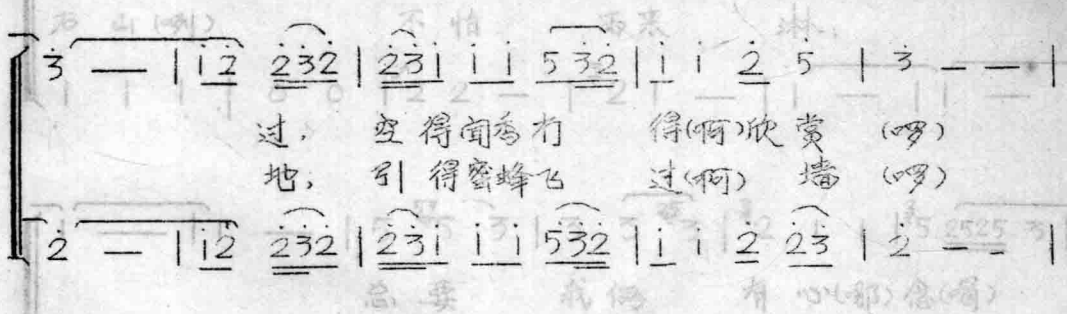 3̇ — — | i̇ 2̇ 2̇3̇2̇ | 2̇3̇i̇ i̇ i̇ 53̇2̇ | i̇ i̇ 2̇ 5̇ | 3̇ – – |
过, 空得闻香冇 得(啊)欣赏 (啰)
地, 引得蜜蜂飞 过(啊) 墙 (啰)
2̇ — — | i̇2̇ 2̇3̇2̇ | 2̇3̇i̇ i̇ i̇ 53̇2̇ | i̇ i̇ 2̇ 2̇3̇ | 2̇ – – |